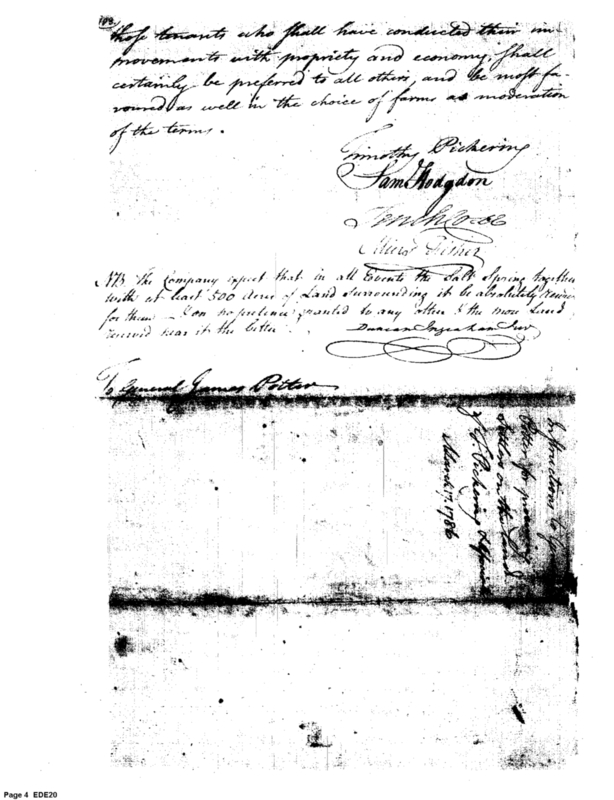 those tenants who shall have conducted their im-
provements with propriety and economy, shall
certainly be preferred to all others, and be most fa-
voured as well in the choice of farms as moderation
of the terms.
Timothy Pickering
Sam Hodgdon
Tench Coxe
Miers Fisher
NB The Company expect that in all Events the Salt Spring together
with at least 500 Acres of Land surrounding it be absolutely
for them granted to any other & the more Land
reserved near it the better
Duncan Ingraham Junr
To General James Potter
Instructions to
Potter for
Settlers on the Land
of T. Pickering &
March 17. 1786
Page 4 EDE20